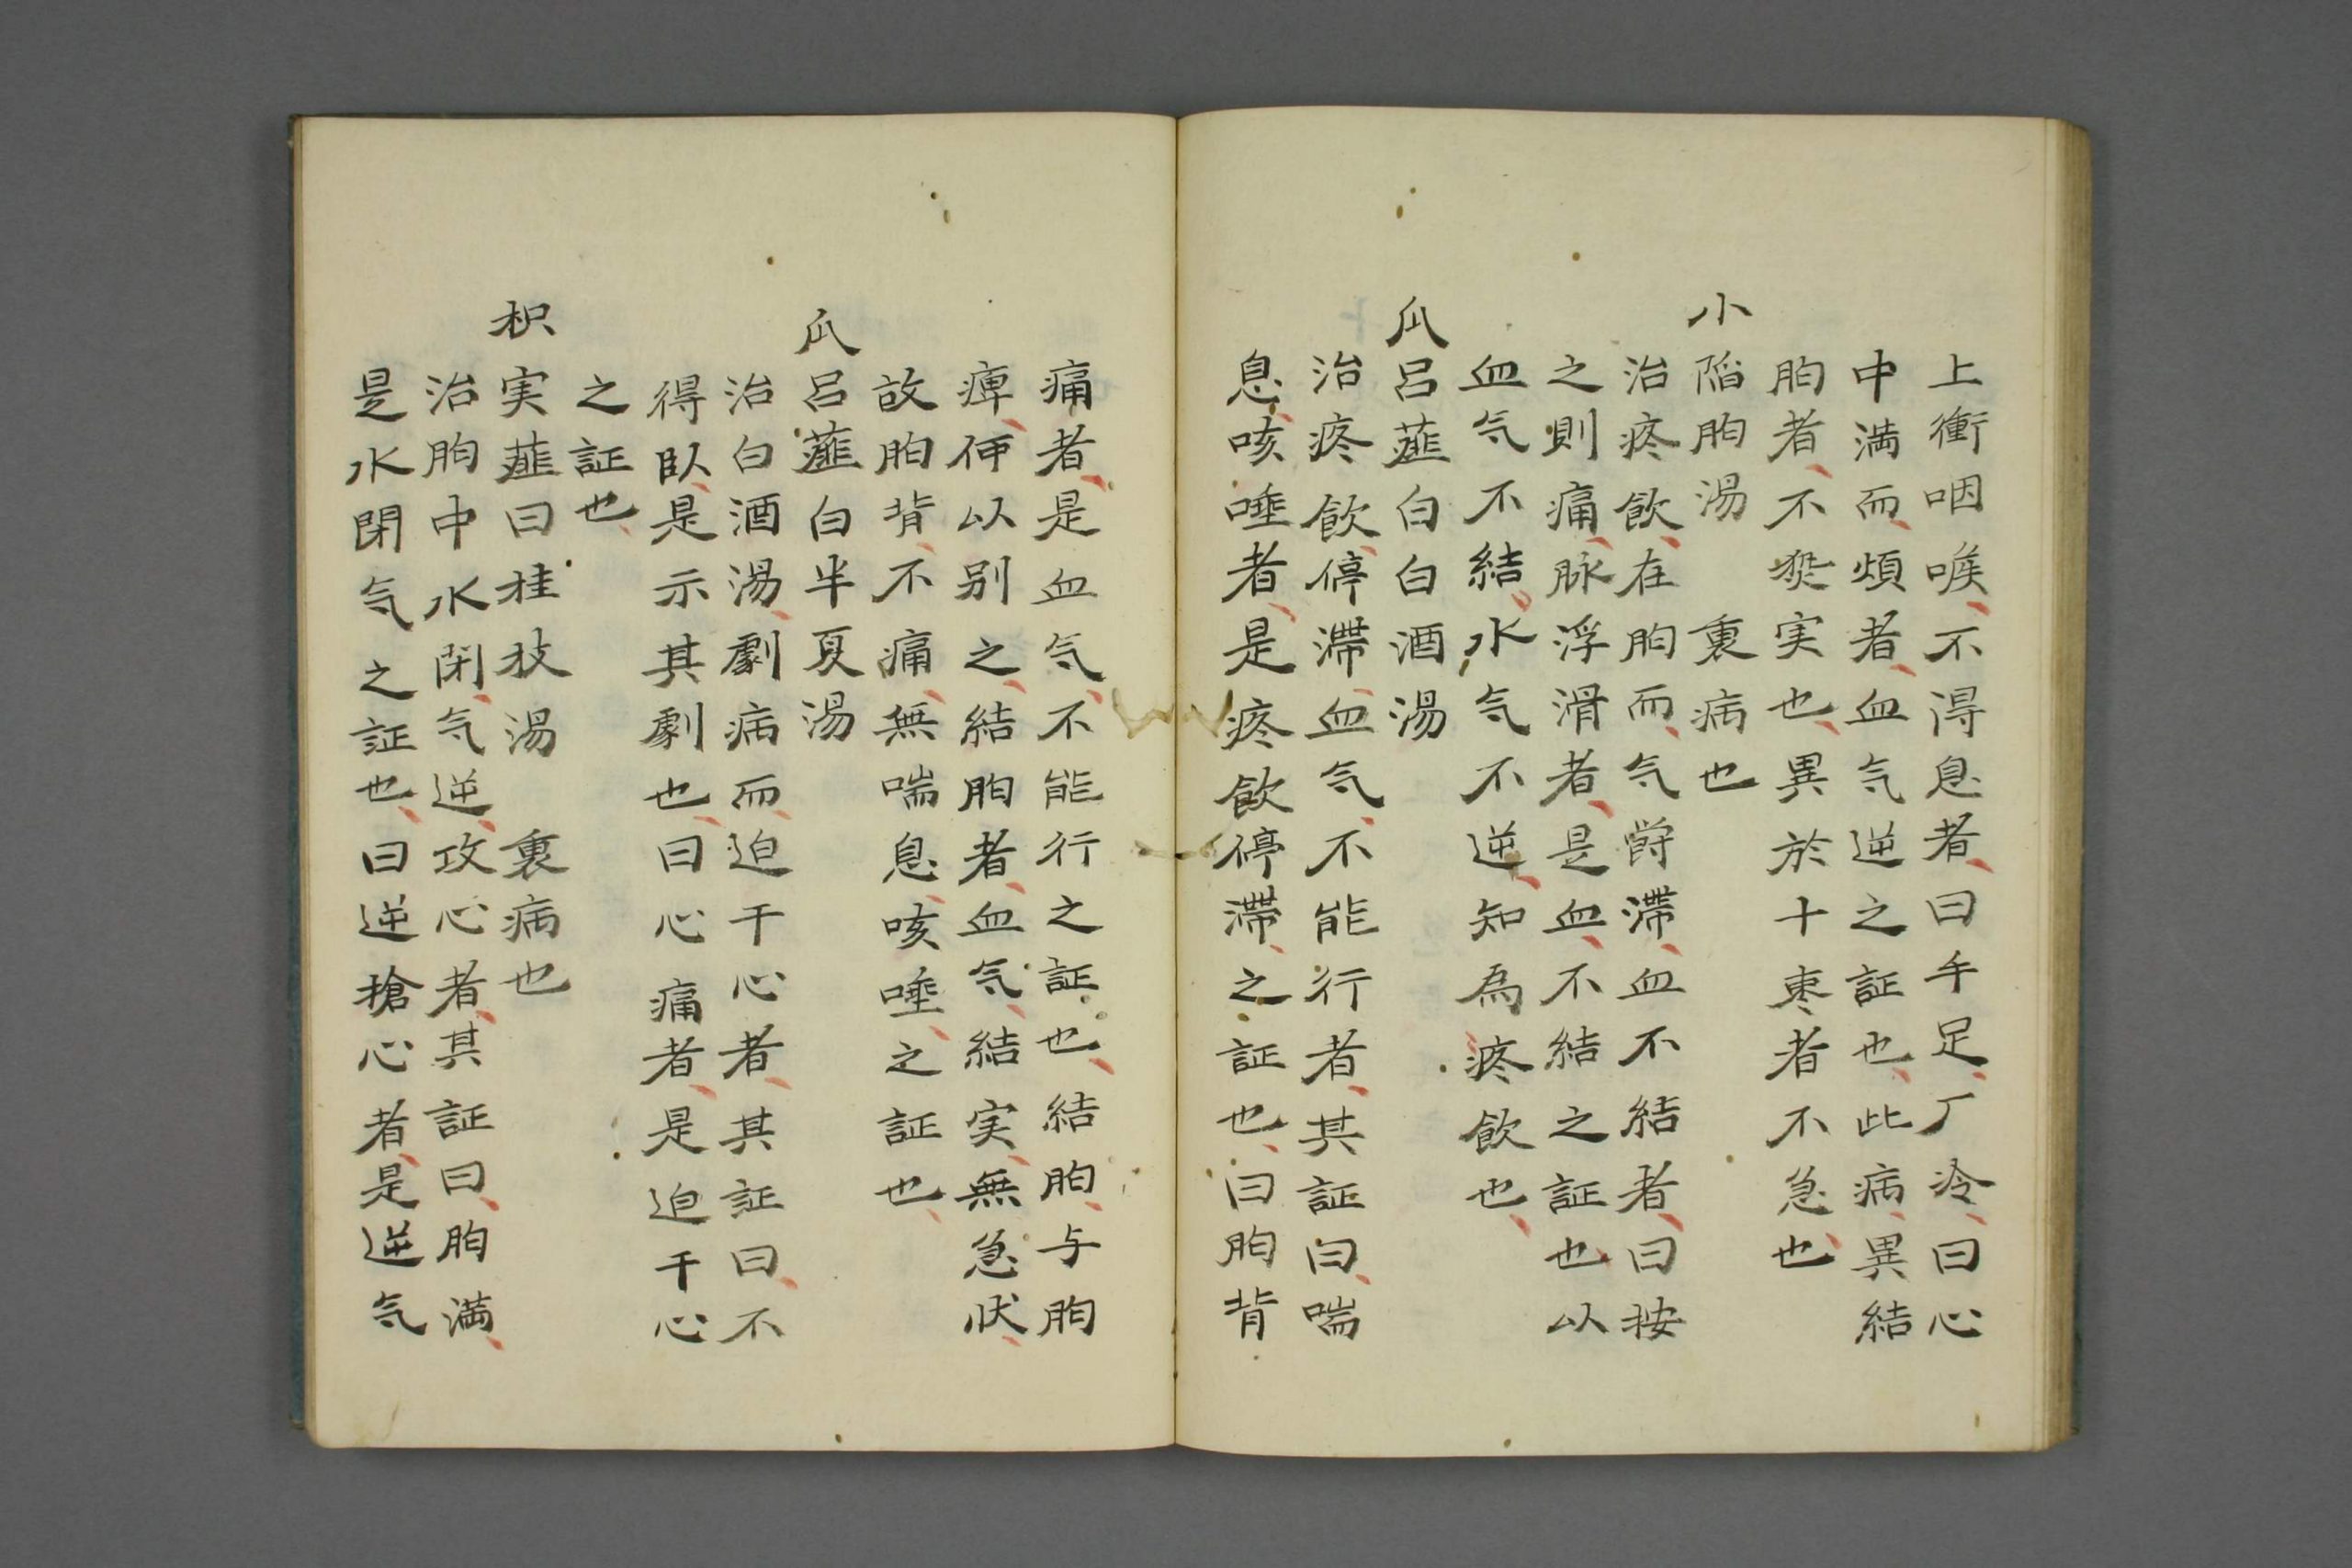 上衝咽喉不得息者曰手足厂冷曰心
中満而煩者血气逆之証也此病異結
胸者不発実也異於十枣者不急也
小陥胸湯　裏病也
治痰飲在胸而气欝滞血不結者曰按
之則痛脉浮滑者是血不結之証也以
血气不結水气不逆知為痰飲也
瓜呂薤白白酒湯
治痰飲停滞血气不能行者其証曰喘
息咳唾者是痰飲停滞之証也曰胸背
痛者是血气不能行之証也結胸与胸
痺何以别之結胸者血气結実無急状
故胸背不痛無喘息咳唾之証也
瓜呂薤白半夏湯
治白酒湯劇病而迫于心者其証曰不
得臥是示其劇也曰心痛者是迫于心
之証也
枳実薤曰桂枝湯　裏病也
治胸中水閉气逆攻心者其証曰胸満
是水閉气之証也曰逆搶心者是逆气